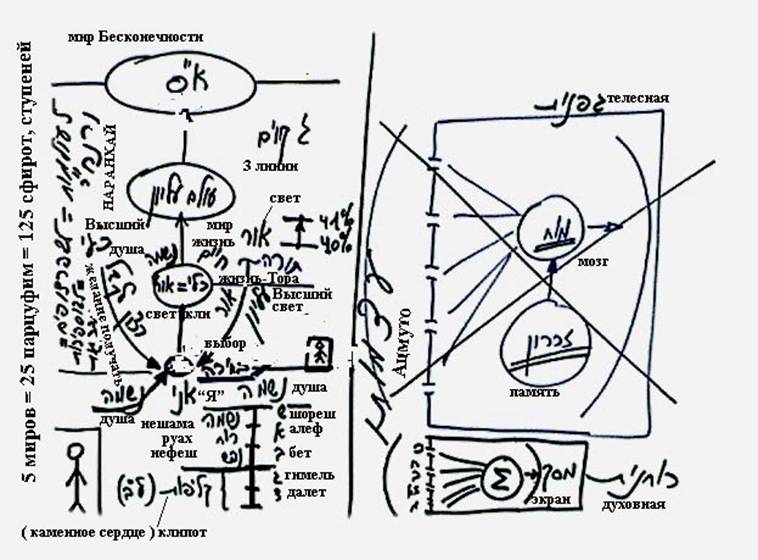 мир Бесконечности
א"ס
5 миров = 25 парцуфим = 125 сфирот, ступеней
НАРАНХАЙ
3 קוים
3 линии
עולם עליון
свет
41%
40%
אור
Высший
душа
мир
жизнь
נשמה
חיים
תורה
жизнь-Тора
כלי=אור
свет кли
אור
עליון
Высший
свет
желание получать
רצון
לקבל
выбор
בחירה
אני
"Я"
נשמה
душа
נשמה
душа
нешама
руах
нефеш
נשמה
רוח
נפש
ש шореш
א алеф
ב бет
ג гимель
ד далет
קליפות (לב)
( каменное сердце ) клипот
גפנית
телесная
מוח
мозг
זכרון
память
עצמותו
Ацмуто
Σ
מסך
экран
רוחנית
духовная